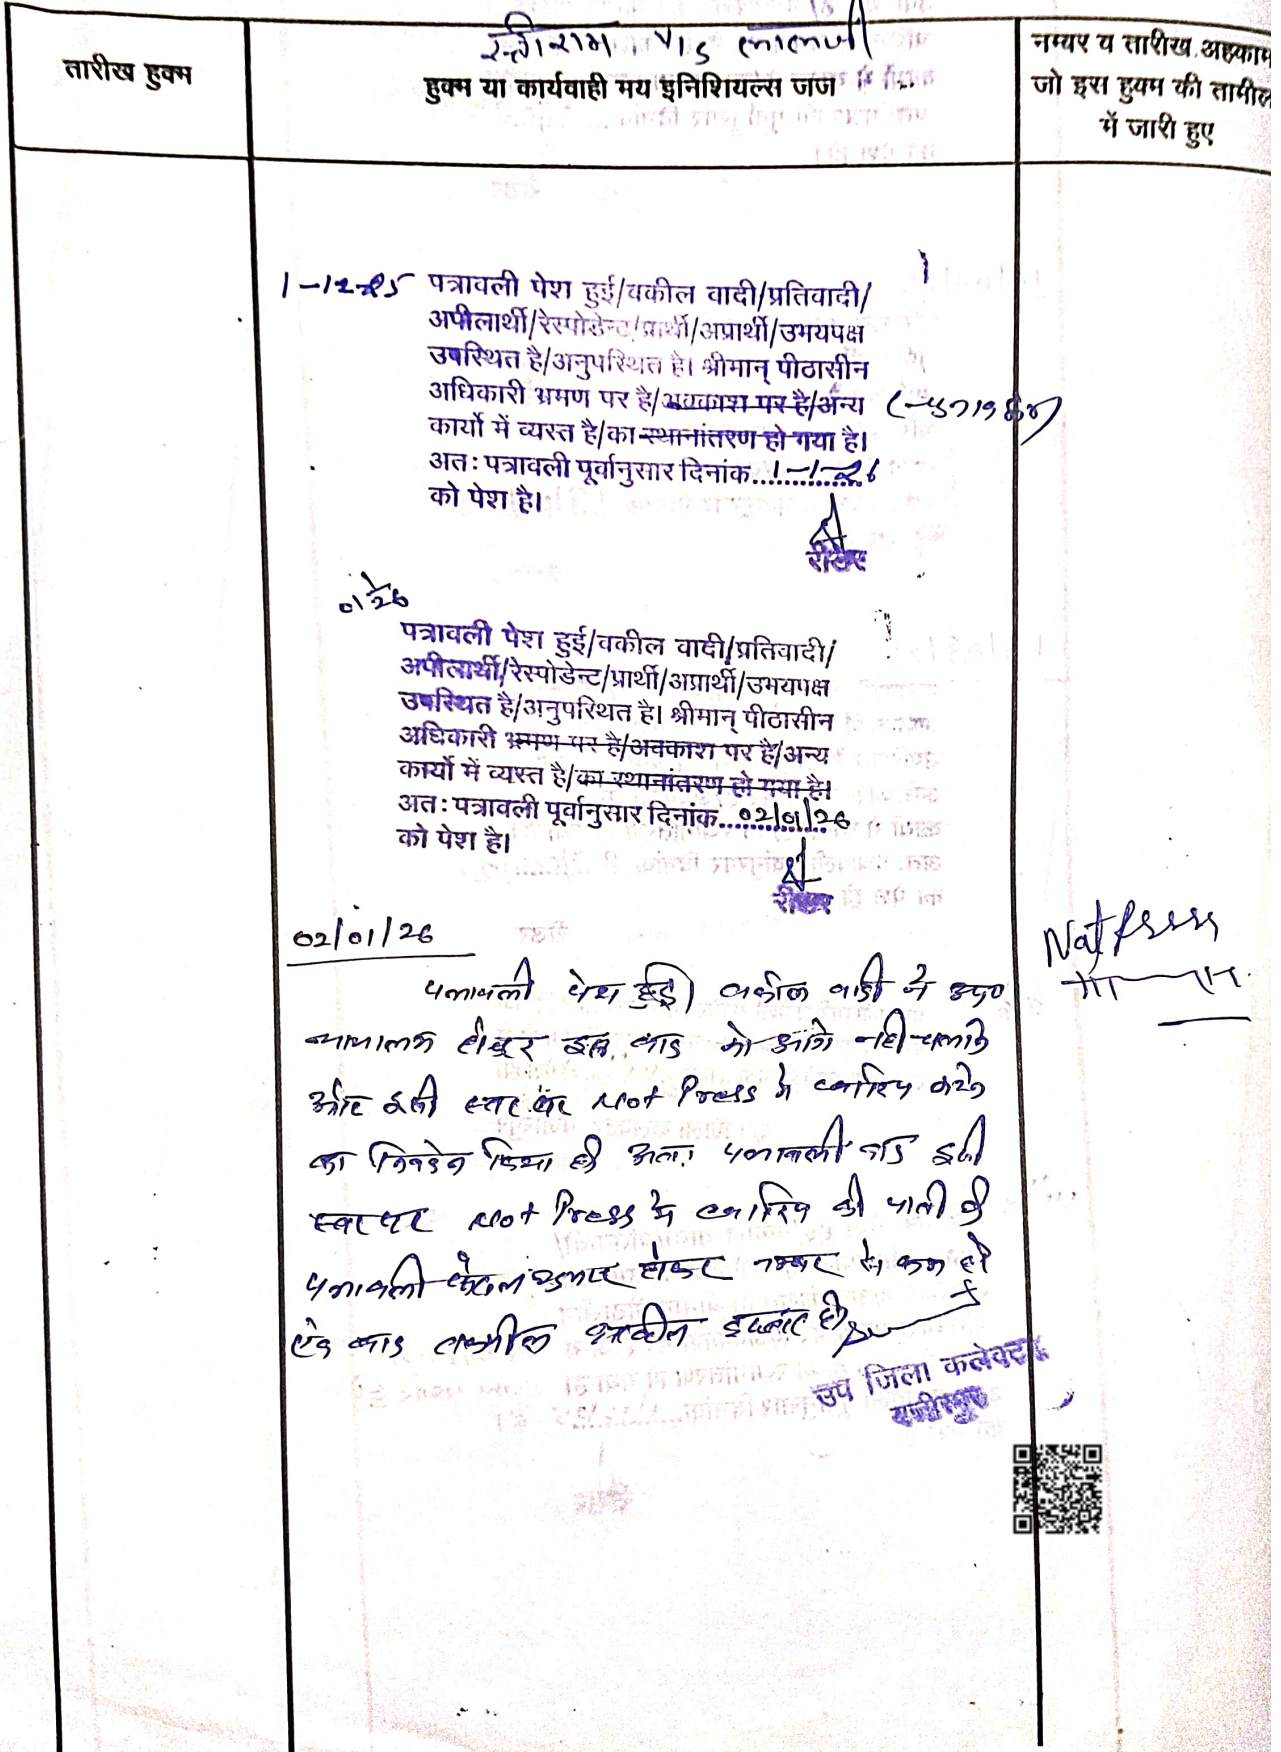 V/S लालजी
तारीख हुक्म
हुक्म या कार्यवाही मय इनिशियल्स जज
नम्बर व तारीख अहकाम
जो इस हुक्म की तामील
में जारी हुए
1-12-25 पत्रावली पेश हुई/वकील वादी/प्रतिवादी/
अपीलार्थी/रेस्पोडेन्ट/प्रार्थी/अप्रार्थी/उभयपक्ष
उपस्थित है/अनुपस्थित है। श्रीमान् पीठासीन
अधिकारी भ्रमण पर है/अवकाश पर है/अन्य
कार्यो में व्यस्त है/का स्थानांतरण हो गया है।
अतः पत्रावली पूर्वानुसार दिनांक....1-1-26
को पेश है।
रीडर
01/26
पत्रावली पेश हुई/वकील वादी/प्रतिवादी/
अपीलार्थी/रेस्पोडेन्ट/प्रार्थी/अप्रार्थी/उभयपक्ष
उपस्थित है/अनुपस्थित है। श्रीमान् पीठासीन
अधिकारी भ्रमण पर है/अवकाश पर है/अन्य
कार्यो में व्यस्त है/का स्थानांतरण हो गया है।
अतः पत्रावली पूर्वानुसार दिनांक....02/01/26
को पेश है।
रीडर
02/01/26
Not Press
पत्रावली पेश हुई। वकील वादी ने
इस वाद को आगे नहीं चलाने
और इसी स्तर पर Not Press में खारिज करने
का निवेदन किया है। अतः पत्रावली वाद इसी
स्तर पर Not Press में खारिज की जाती है
पत्रावली फैसल शुमार होकर नम्बर से कम हो
एवं बाद तकमील दाखिल दफ्तर हो।
उप जिला कलेक्टर
वजीरपुर